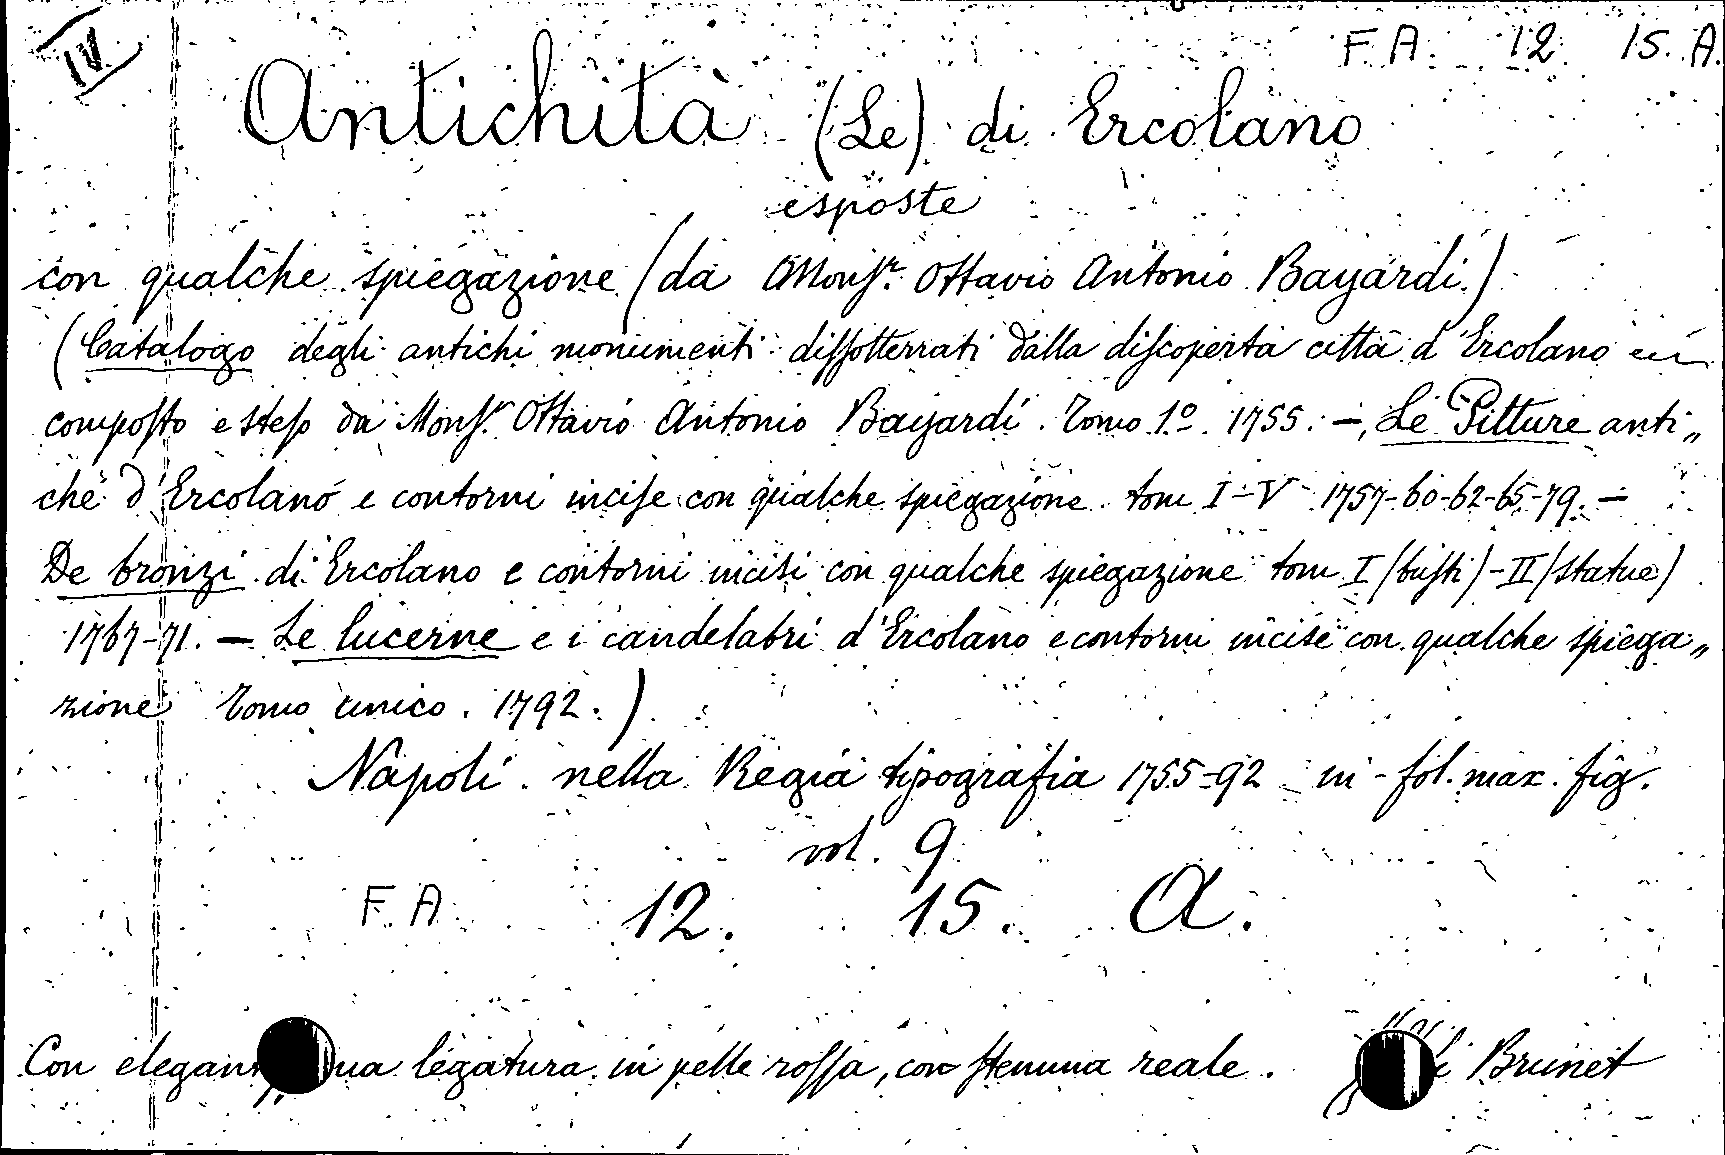 IV
F. A. 12 15. A.
Antichità (Le) di Ercolano
esposte
con qualche spiegazione (da Monſr. Ottavio Antonio Bayardi.)
(Catalogo degli antichi monumenti diſſotterrati dalla diſcoperta città d'Ercolano
compoſto e steſo da Monſr. Ottavio Antonio Bayardi. Tomo 1º. 1755. —, Le Pitture anti„
che d'Ercolano e contorni inciſe con qualche spiegazione. tom I-V 1757-60-62-65-79. —
De bronzi di Ercolano e contorni incisi con qualche spiegazione tom I (buſti)-II (statue)
1767-71. — Le lucerne e i candelabri d'Ercolano e contorni incise con qualche spiega„
zione Tomo unico. 1792.)
Napoli. nella Regia tipografia 1755-92 in-fol. max. fig.
vol. 9
F. A. 12. 15. A.
Con legatura in pelle roſſa, con ſtemma reale. Brunet